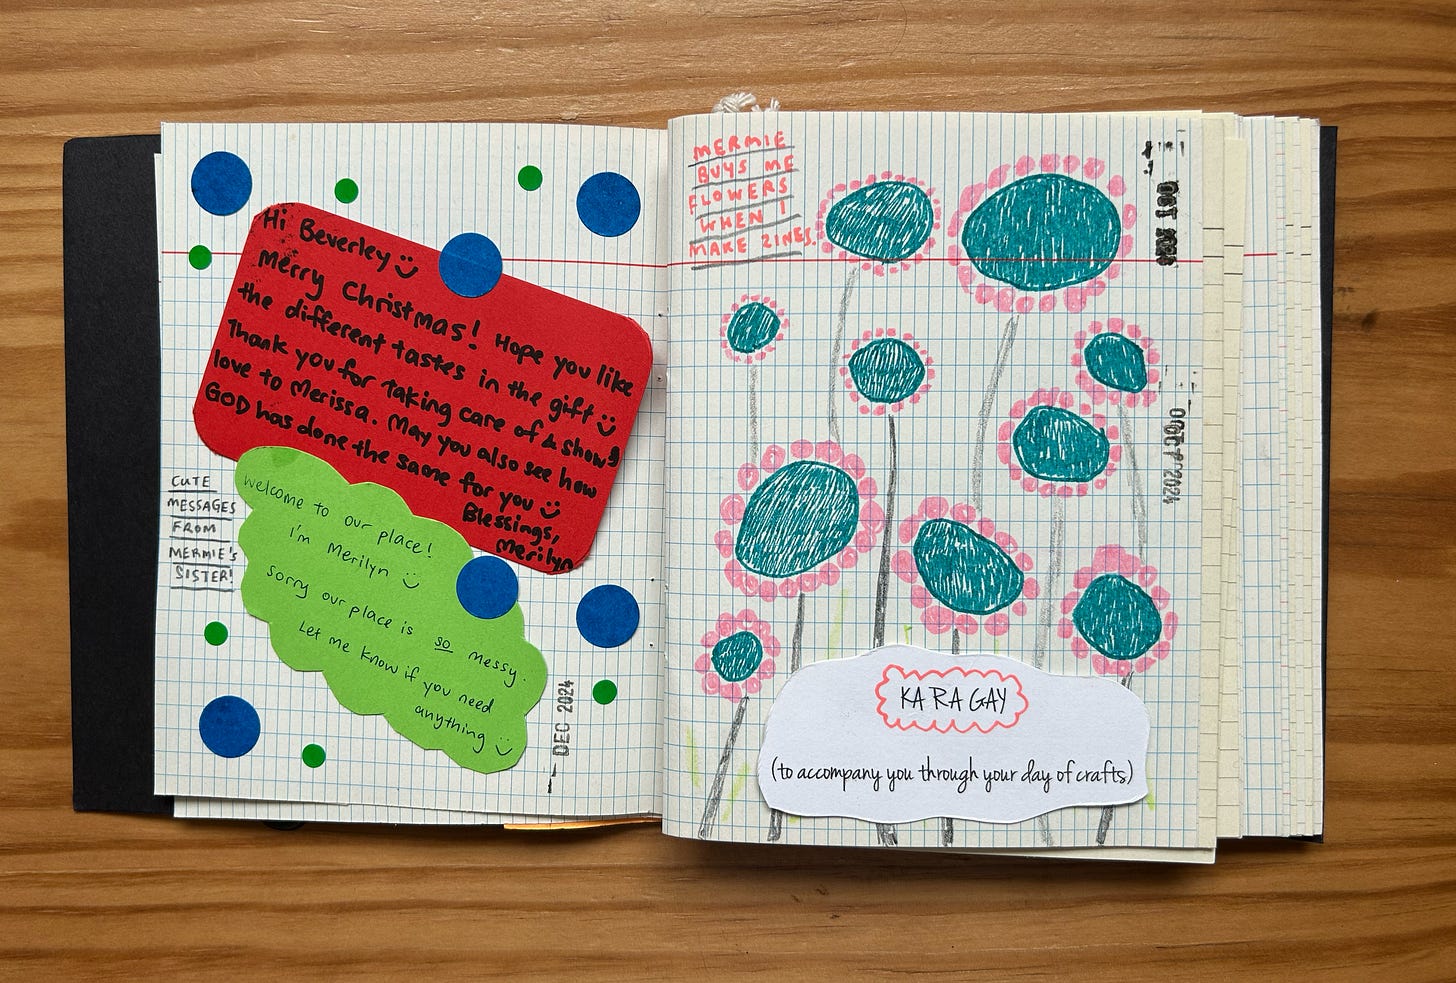 Hi Beverley
Merry Christmas! Hope you like
the different tastes in the gift
Thank you for taking care of & show
love to Merissa. May you also see how
GOD has done the same for you
Blessings,
Merilyn
CUTE
MESSAGES
FROM
MERMIE'S
SISTER!
welcome to our place!
I'm Merilyn
sorry our place is so messy.
Let me know if you need
anything
DEC 2024
MERMIE
BUYS ME
FLOWERS
WHEN I
MAKE ZINES.
OCT 2024
2024
KA RA GAY
(to accompany you through your day of crafts)